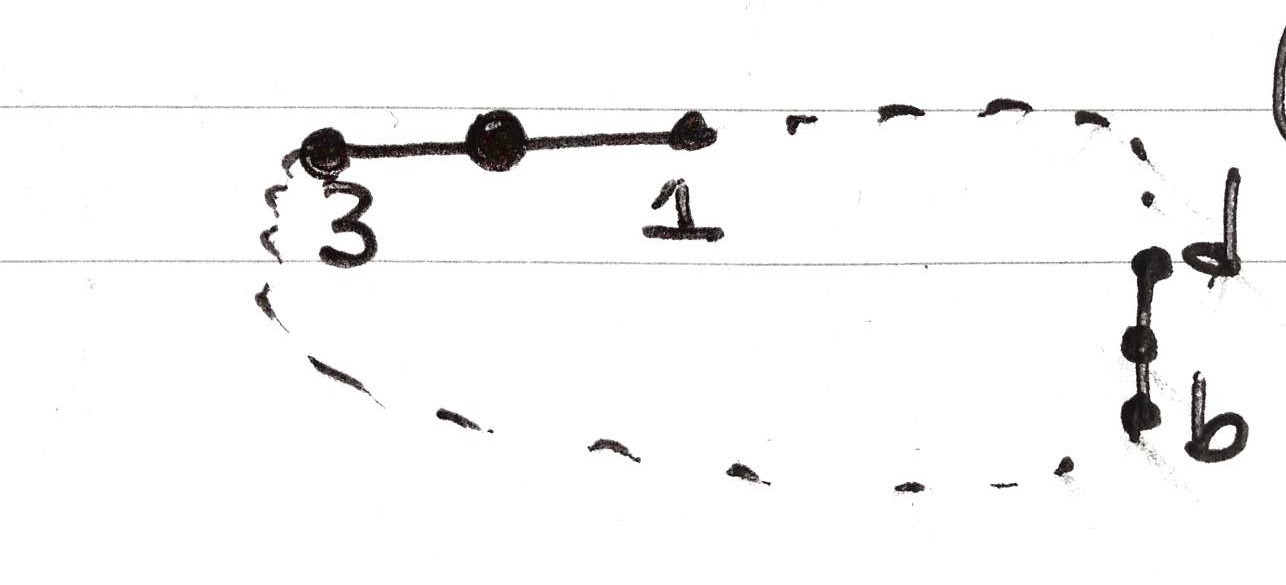 3 1 d
b